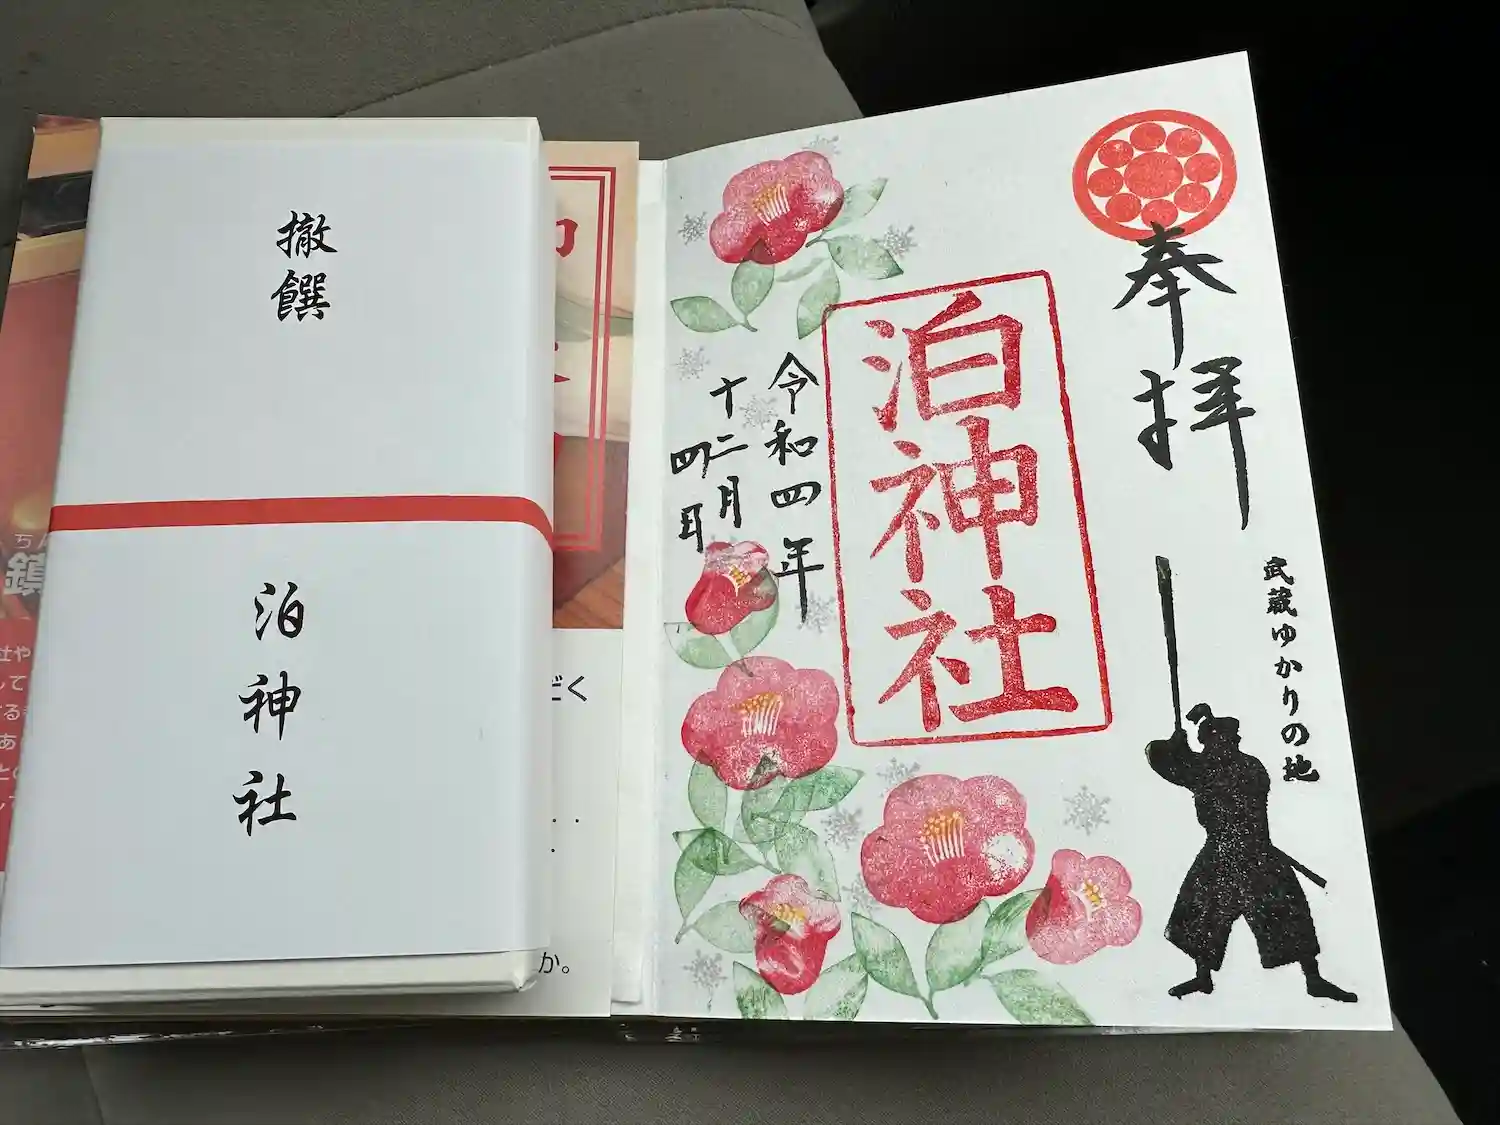 撤饌
泊神社
奉拝
武蔵ゆかりの地
泊神社
令和四年
十二月
四日
ちん
鎮
社や
して
する
あ
との
して
だく
か。